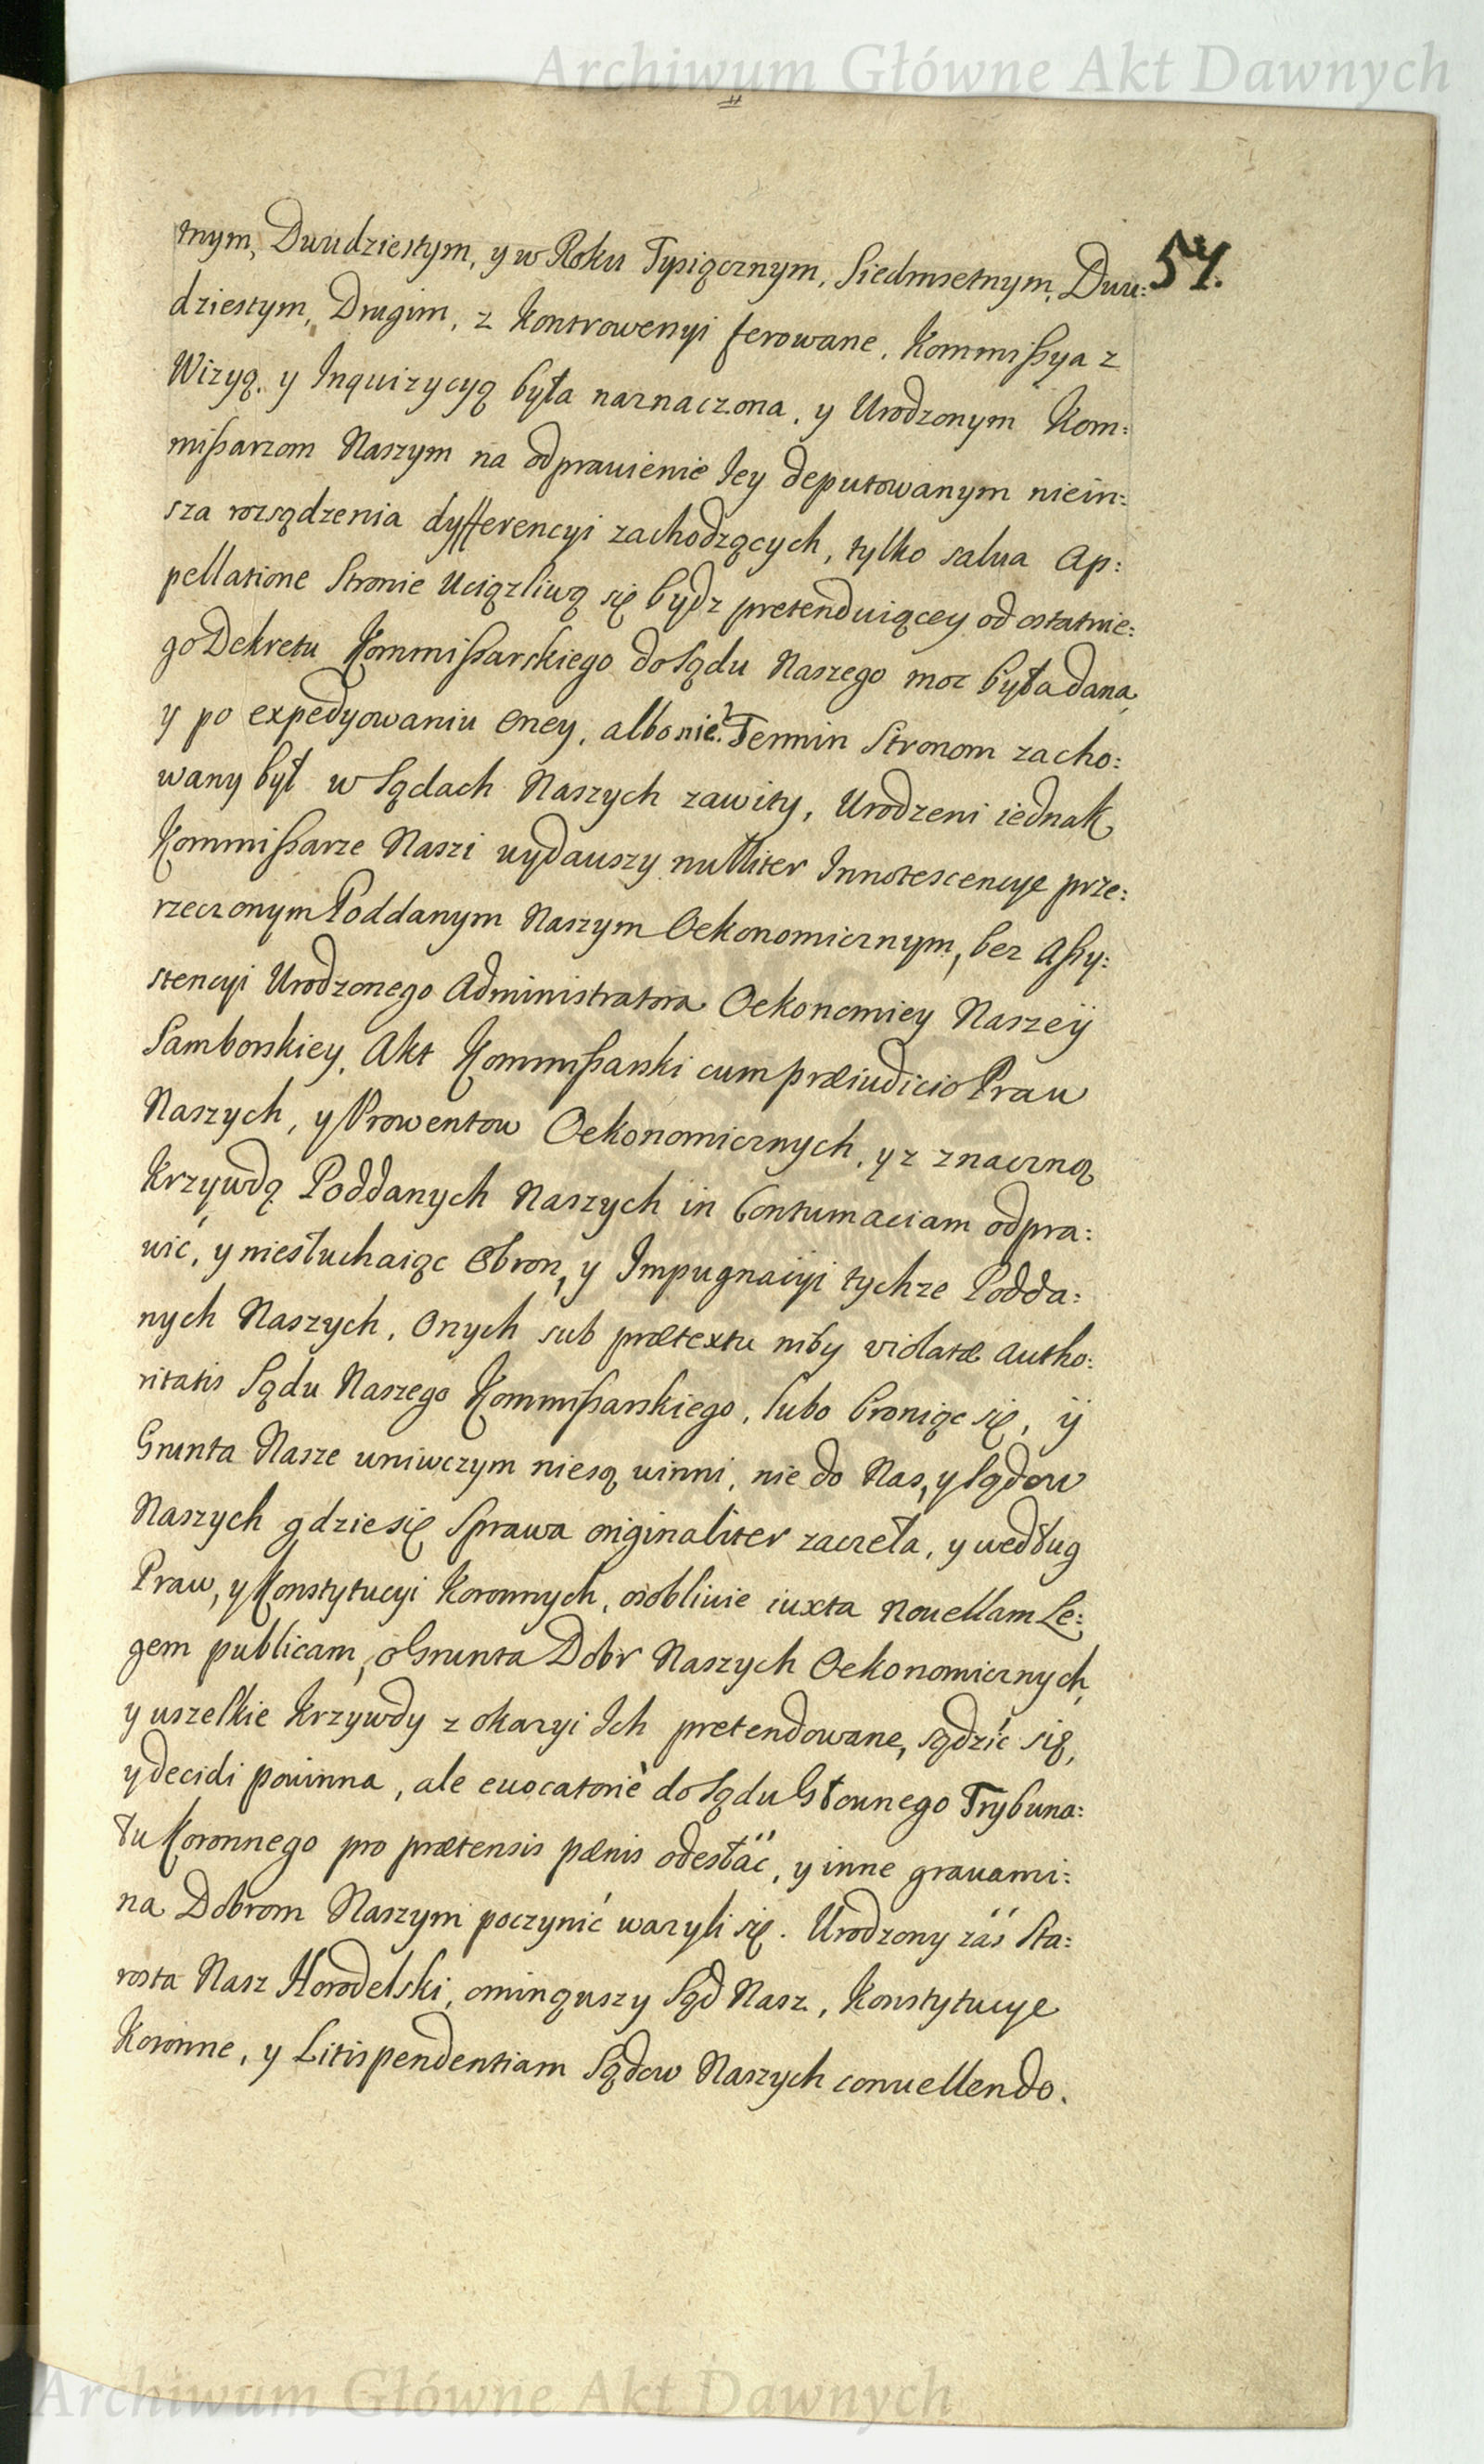 Archiwum Główne Akt Dawnych
54.
tnym, Dwudziestym, y w Roku Tysiącznym, Siedmsetnym, Dwu:
dziestym, Drugim, z Kontrowenyi ferowane, Kommißya z
Wizyą, y Inquizycyą była naznaczona, y Urodzonym Kom:
mißarzom Naszym na odprawienie Iey deputowanym niein:
sza rozsądzenia dyfferencyi zachodzących, tylko salva Ap:
pellatione Stronie Uciązliwą się bydz pretenduiącey od ostatnie:
go Dekretu Kommißarskiego do Sądu Naszego moc była dana,
y po expedyowaniu Oney, albo nie? Termin Stronom zacho:
wany był w Sądach Naszych zawity, Urodzeni iednak
Kommißarze Naszi wydawszy nulliter Innotescencye prze:
rzeczonym Poddanym Naszym Oekonomicznym, bez Aßy:
stencyi Urodzonego Administratora Oekonomiey Naszeÿ
Samborskiey, Akt Kommißarski cum præiudicio Praw
Naszych, y Prowentow Oekonomicznych, y z znaczną
Krzywdą Poddanych Naszych in Contumaciam odpra:
wić, y niesłuchaiąc Obron, y Impugnacyi tychze Podda:
nych Naszych, Onych sub prætextu niby violatæ Autho:
ritatis Sądu Naszego Kommißarskiego, lubo broniąc się, ÿ
Grunta Nasze uniwczym niesą winni, nie do Nas, y Sądow
Naszych gdzie się Sprawa originaliter zaczeła, y według
Praw, y Konstytucyi Koronnych, osobliwie iuxta Novellam Le:
gem publicam, o Grunta Dobr Naszych Oekonomicznych,
y wszelkie Krzywdy z okazyi Ich pretendowane, sądzić się,
y decidi powinna, ale evocatoriè do Sądu Głownego Trybuna:
łu Koronnego pro prætensis pænis odesłać, y inne gravami:
na Dobrom Naszym poczynić wazyli się. Urodzony zaś Sta:
rosta Nasz Horodelski, ominąwszy Sąd Nasz, Konstytucye
Koronne, y Litispendentiam Sądow Naszych convellendo.
Archiwum Główne Akt Dawnych